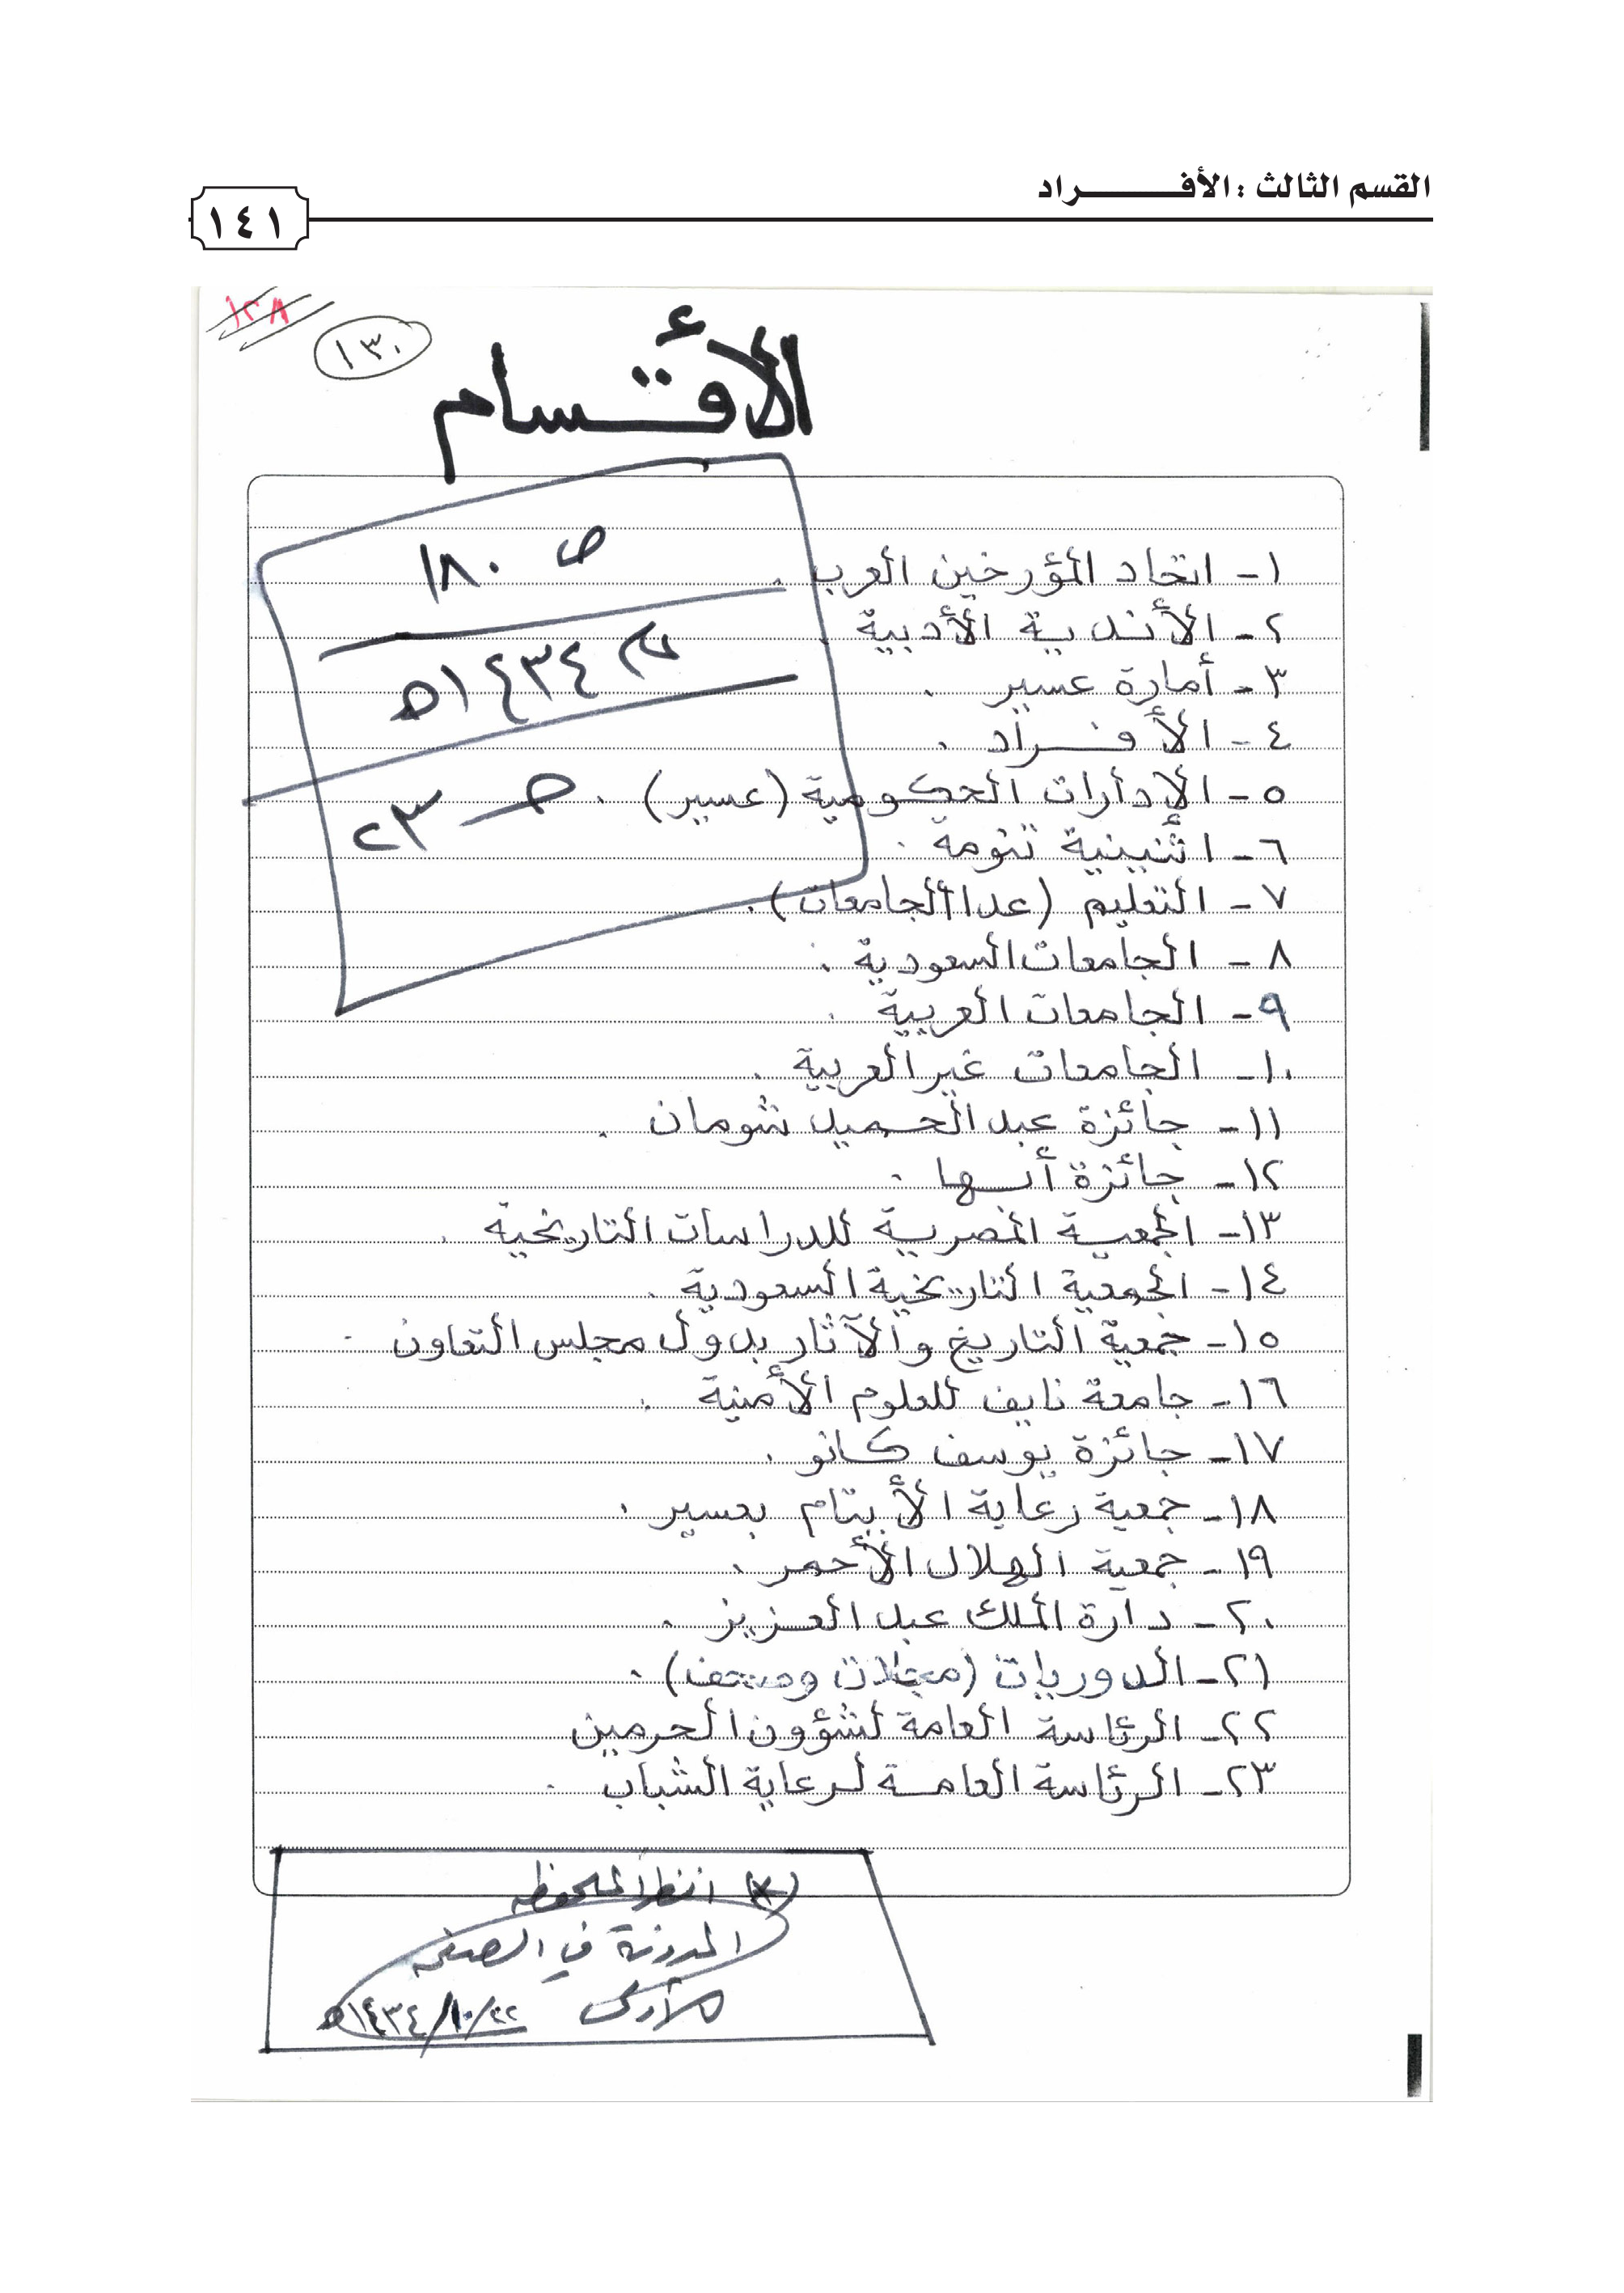 القسم الثالث : الأفــــــراد
١٤١
١٢٨
١٣٠
الأقسام
ص ١٨٠
١٤٣٤هـ
٢٣
١- اتحاد المؤرخين العرب .
٢- الأندية الأدبية .
٣- أمارة عسير .
٤- الأفــراد .
٥- الإدارات الحكومية (عسير) .
٦- اثنينية تنومة .
٧- التعليم (عدا الجامعات) .
٨- الجامعات السعودية .
٩- الجامعات العربية .
١٠- الجامعات غير العربية .
١١- جائزة عبد الحميد شومان .
١٢- جائزة أبها .
١٣- الجمعية المصرية للدراسات التاريخية .
١٤- الجمعية التاريخية السعودية .
١٥- جمعية التاريخ والآثار بدول مجلس التعاون .
١٦- جامعة نايف للعلوم الأمنية .
١٧- جائزة يوسف كانو .
١٨- جمعية رعاية الأيتام بعسير .
١٩- جمعية الهلال الأحمر .
٢٠- دارة الملك عبد العزيز .
٢١- الدوريات (مجلات وصحف) .
٢٢- الرئاسة العامة لشؤون الحرمين
٢٣- الرئاسة العامة لرعاية الشباب .
(*) انظر الملحوظة
المدونة في الصفحة
الأولى ٢٢/١٠/١٤٣٤هـ